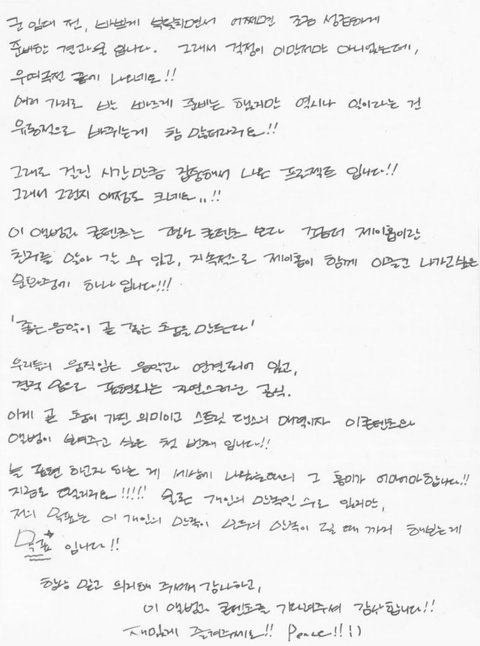 군 입대 전, 바쁘게 부딪히면서 어쩌면 조금 성급하게
준비한 결과물 입니다. 그래서 걱정이 이만저만 아니었는데,
우여곡절 끝에 나오네요!!
여러 가지로 바쁘게 준비는 했지만 역시나 일이라는 건
유동적으로 바뀌는게 참 많더라구요!!
그래도 걸린 시간만큼 집중해서 나온 프로젝트 입니다!!
그래서 그런지 애정도 크네요..!!
이 앨범과 콘텐츠는 보다 좀 더 제이홉이란
친구를 알아 갈 수 있고, 지속적으로 제이홉이 함께 이끌고 나가고 싶은
하나 입니다!!!
'좋은 음악이 곧 좋은 춤을 만든다'
우리들의 움직임은 음악과 연결되어 있고,
표현되는 자연스러운 공식.
이게 곧 춤이 가진 의미이고 스트릿 댄스의 매력이자 이 콘텐츠와
앨범이 보여주고 싶은 첫 번째 입니다!!
늘 표현 하고자 하는 게 세상에 나왔을때의 그 흥미가 어마어마합니다!!
지금도 떨려요!!!!! 물론 개인의 만족일 수도 있지만,
저의 목표는 이 개인의 만족이 모두의 만족이 될 때 까지 해보는게
목표 입니다!!
항상 믿고 의지해 주셔서 감사하고,
이 앨범과 콘텐츠를 기다려주셔 감사합니다!!
재밌게 즐겨주세요!! Peace!!!))